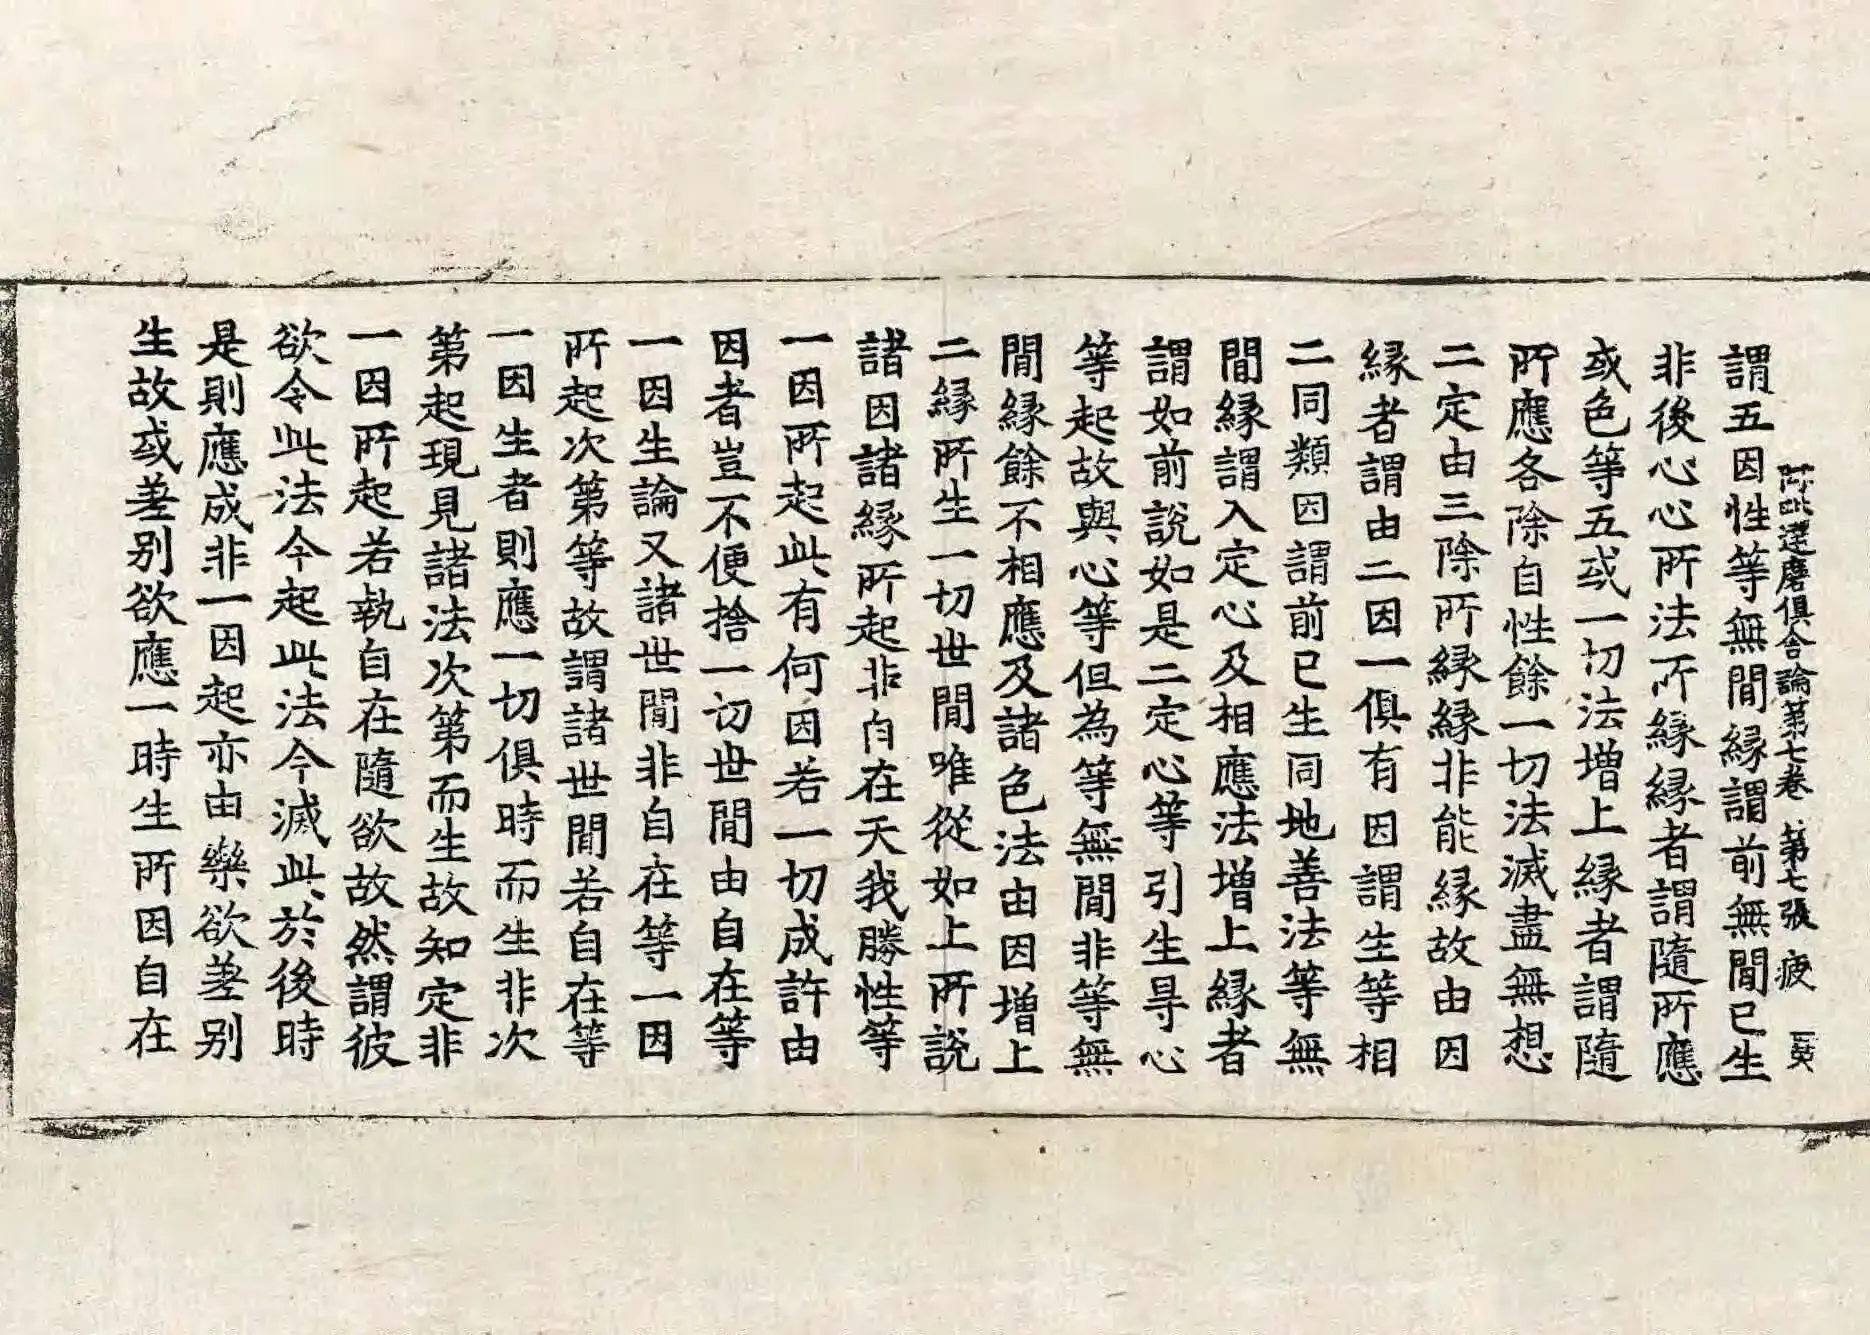 阿毗達磨俱舍論第七卷 第七張 疲
謂五因性等無閒緣謂前無閒已生
非後心心所法所緣緣者謂隨所應
或色等五或一切法增上緣者謂隨
所應各除自性餘一切法滅盡無想
二定由三除所緣緣非能緣故由因
緣者謂由二因一俱有因謂生等相
二同類因謂前已生同地善法等無
閒緣謂入定心及相應法增上緣者
謂如前說如是二定心等引生㝵心
等起故與心等但為等無閒非等無
閒緣餘不相應及諸色法由因增上
二緣所生一切世閒唯從如上所說
諸因諸緣所起非自在天我勝性等
一因所起此有何因若一切成許由
因者豈不便捨一切世閒由自在等
一因生論又諸世閒非自在等一因
所起次第等故謂諸世閒若自在等
一因生者則應一切俱時而生非次
第起現見諸法次第而生故知定非
一因所起若執自在隨欲故然謂彼
欲令此法今起此法今滅此於後時
是則應成非一因起亦由樂欲差別
生故或差別欲應一時生所因自在